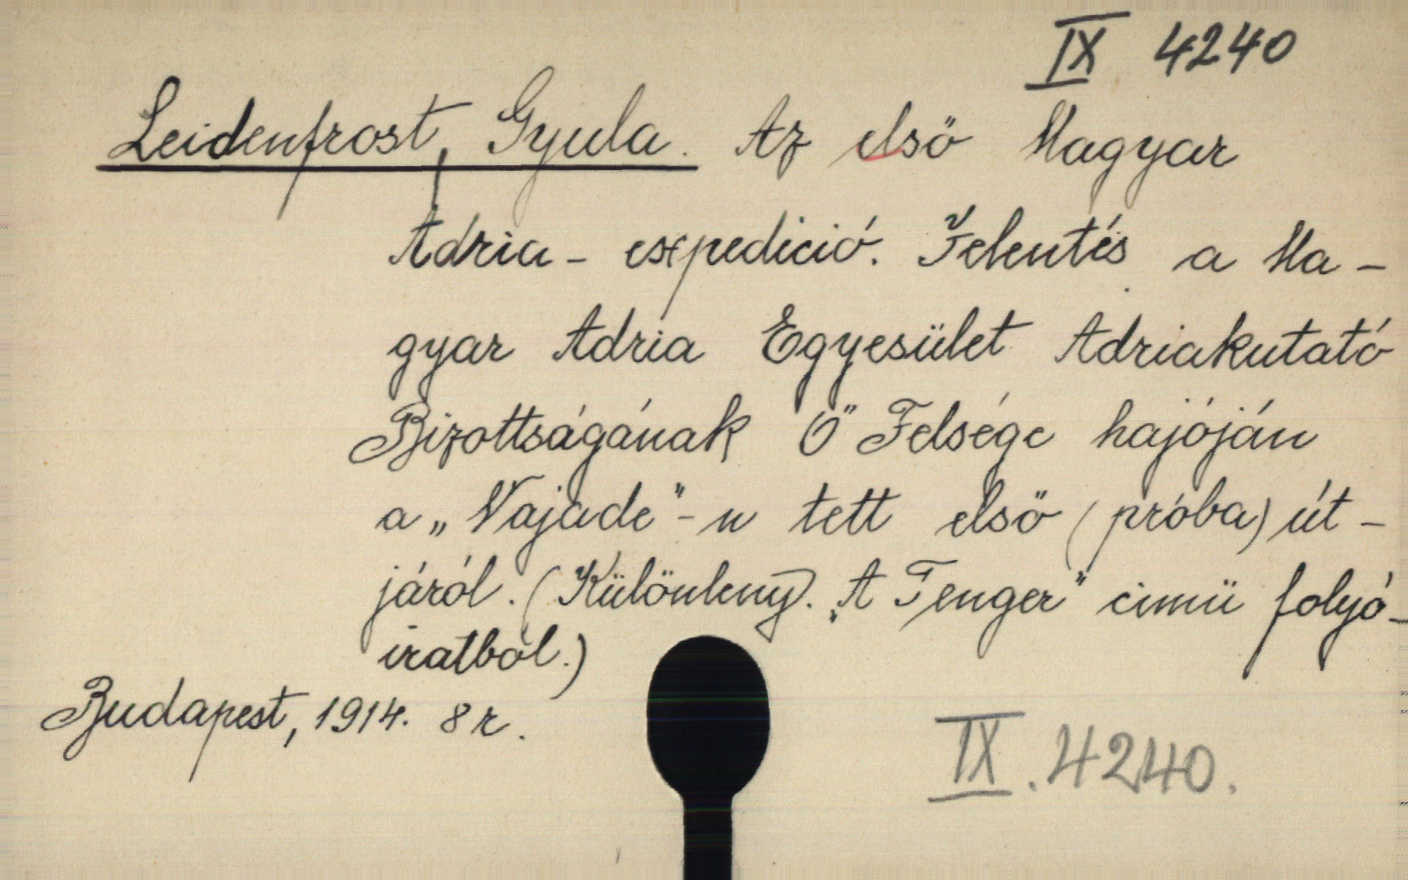 IX 4240
Leidenfrost, Gyula. Az első Magyar
Adria - expedició. Jelentés a Ma -
gyar Adria Egyesület Adriakutató
Bizottságának Ő Felsége hajóján
a „Najade" - n tett első (próba) út -
járól. (Különleny. „A Tenger" cimü folyó-
iratból.)
Budapest, 1914. 8 r.
IX. 4240.